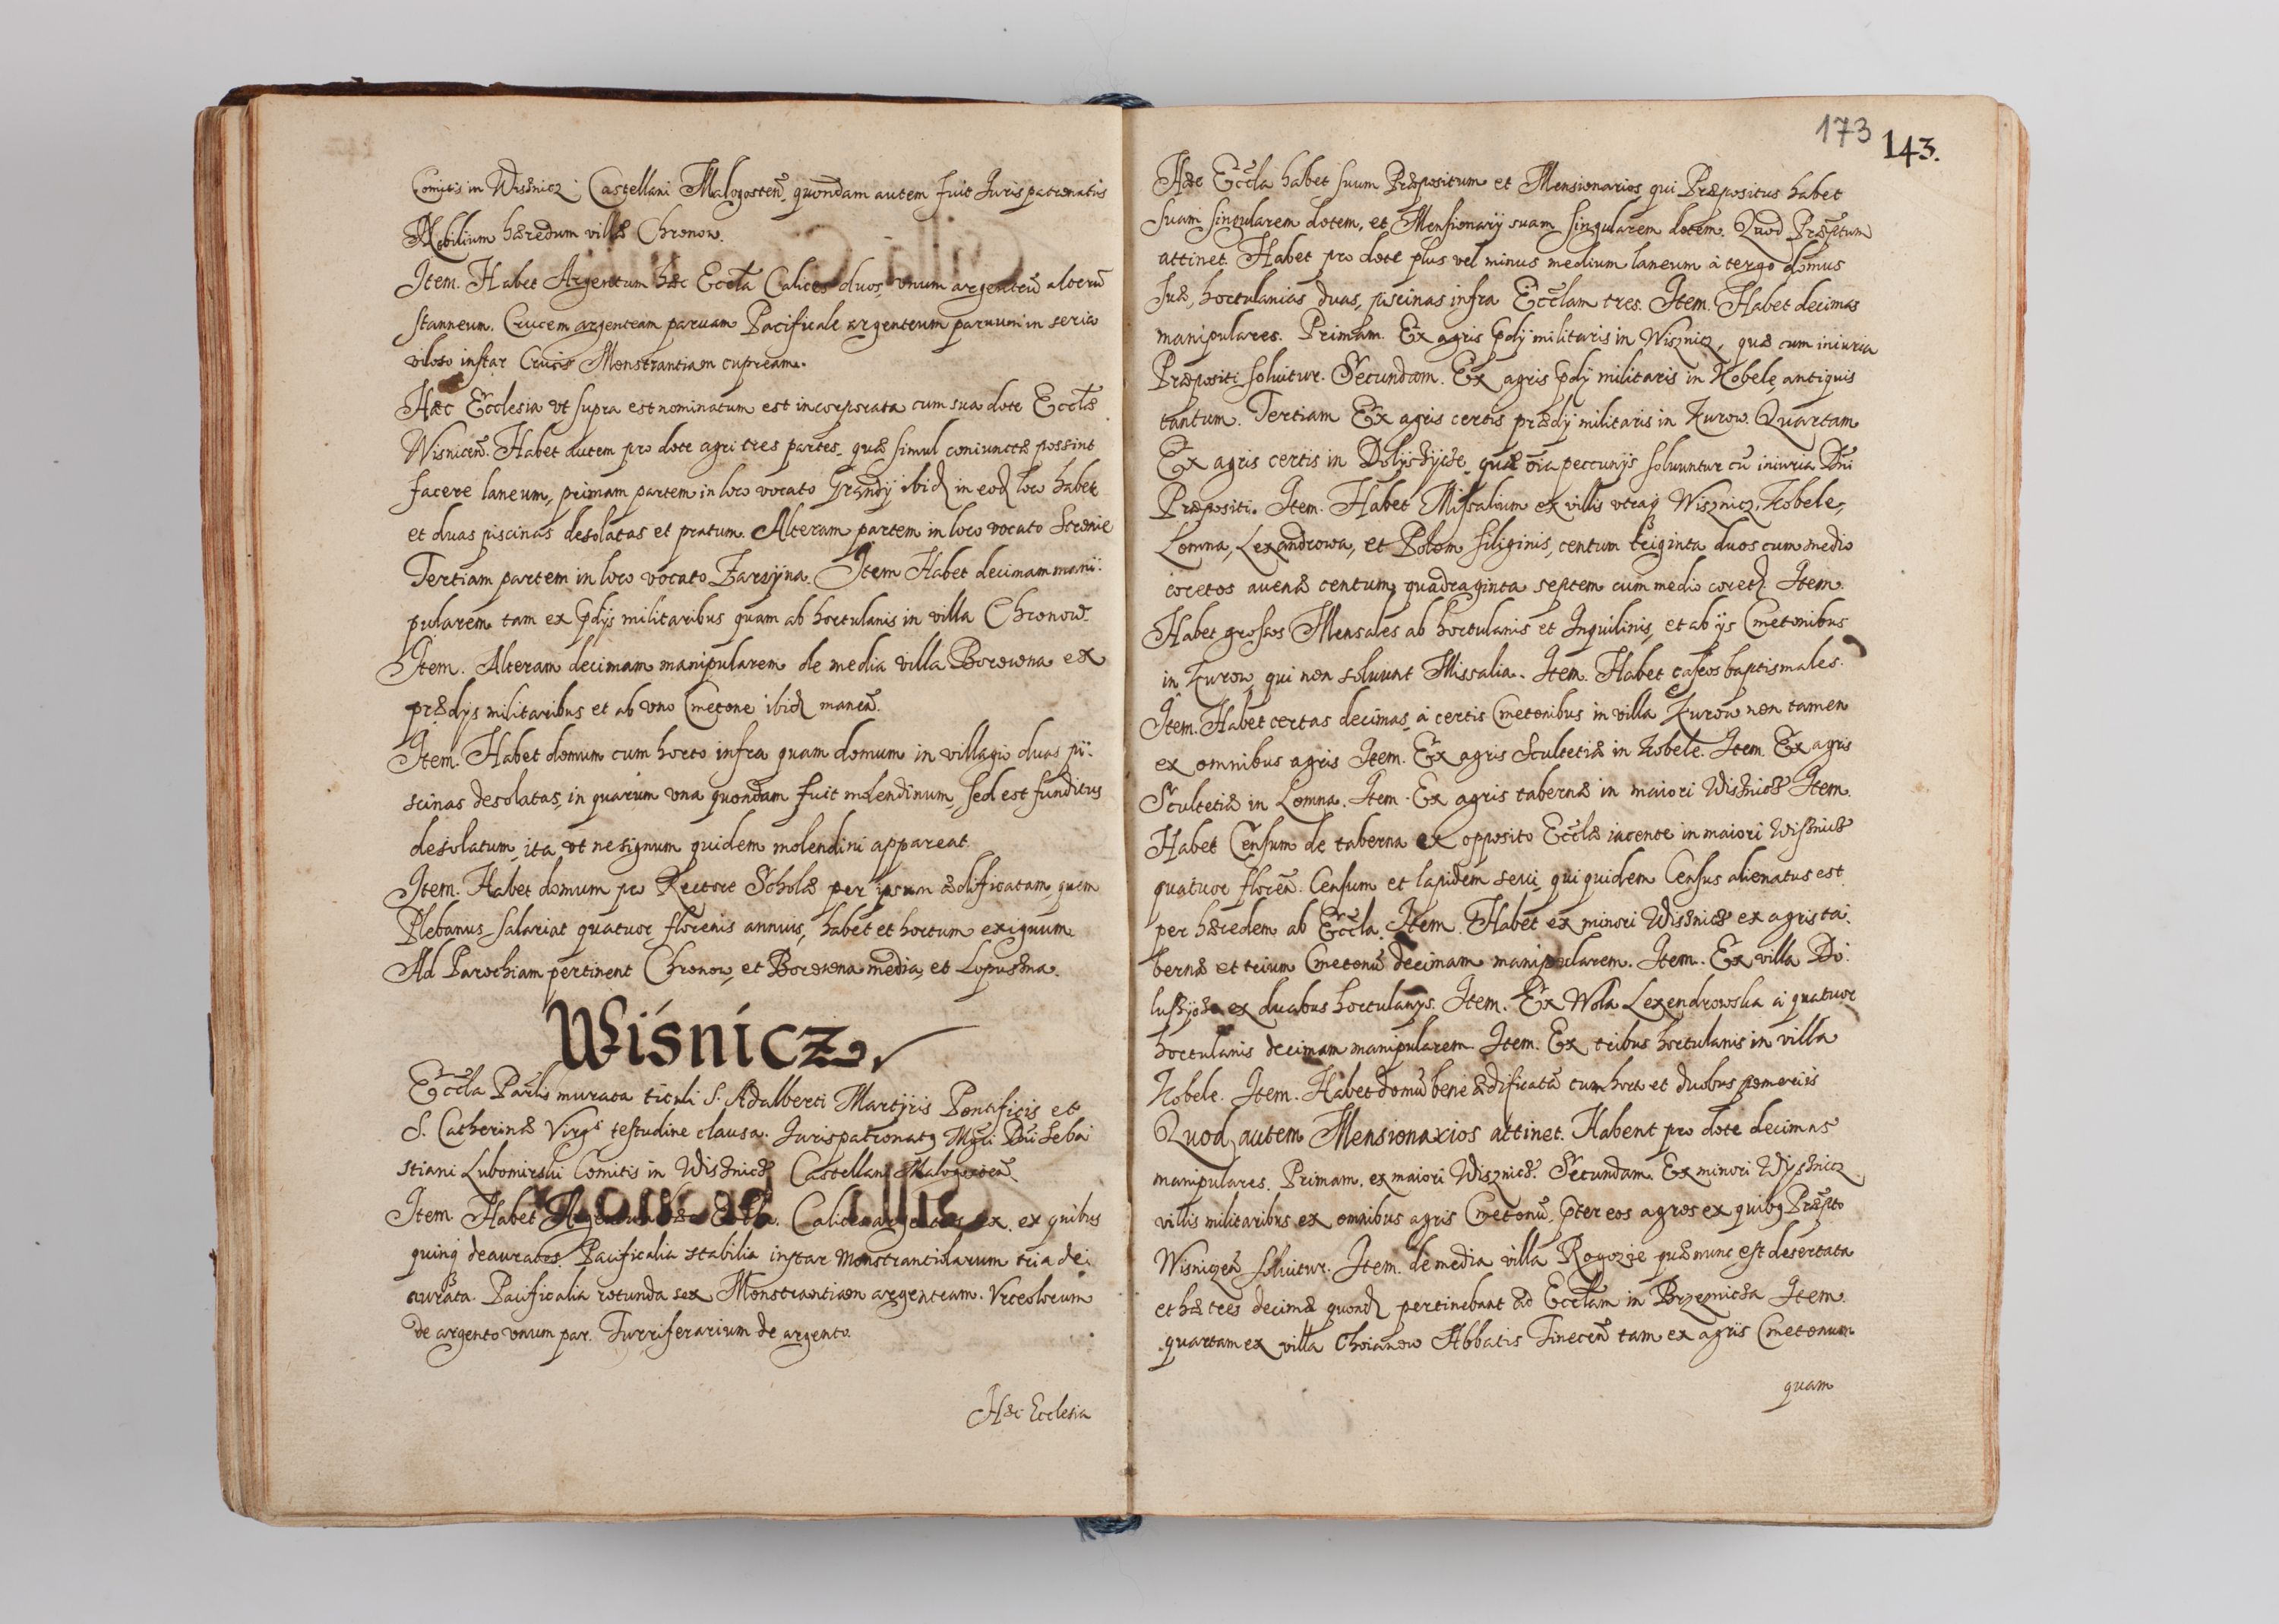 Comitis in Wisznicz Castellani Malogosteñ. quondam autem fuit Juris patronatus
Nobilium hæredum villæ Chronow.
Item. Habet Argentum hæc Eccła Calices duos, vnum argenteũ alterũ
stanneum. Crucem argenteam paruam Pacificale argenteum paruum in serico
viloso instar Crucis Monstrantiam cupream.
Hæc Ecclesia vt supra est nominatum est incorporata cum sua dote Eccłæ
Wisniceñ. Habet autem pro dote agri tres partes, quæ simul coniunctæ possint
facere laneum, primam partem in loco vocato Grądy ibid in eod loco habet
et duas piscinas desolatas et pratum. Alteram partem in loco vocato Stronie
Tertiam partem in loco vocato Zarzyna. Item Habet decimam mani:
pularem tam ex p̃dys militaribus quam ab hortulanis in villa Chronow.
Item. Alteram decimam manipularem de media villa Borowna ex
prædys militaribus et ab vno Cmetone ibid maneñ.
Item. Habet domum cum horto infra quam domum in villagio duas pi:
scinas desolatas, in quarum vna quondam fuit molendinum, sed est funditus
desolatum, ita vt ne signum quidem molendini appareat.
Item. Habet domum pro Rectore Scholæ per ipsum ædificatam, quem
Plebanus salariat quatuor florenis annuis, habet et hortum exiguum
Ad Parochiam pertinent Chronow, et Borowna media, et Lopuszna.
Wisnicz
Eccła Parłis murata tituli S. Adalberti Martyris Pontificis et
S. Catherinæ Virgs testudine clausa. Jurispatronatq Mgci Dni Seba:
stiani Lubomirski Comitis in Wisznicz Castellani Malogoceñ.
Item Habet Argentum hæc Eccła. Calices argenteos sex, ex quibus
quinq deauratos. Pacificalia stabilia instar Monstrantiolarum tria de:
aurata. Pacificalia rotunda sex Monstrantiam argenteam. Vrceolorum
de argento vnum par. Turriferarium de argento.
Hæc Ecclesia
173 143.
Hæc Eccła habet suum Præpositum et Mensionarios, qui Præpositus habet
suam singularem dotem, et Mensionarij suam singularem dotem. Quod Præptum
attinet. Habet pro dote plus vel minus medium laneum à tergo domus
suæ, hortulanias duas, piscinas infra Ecclam tres. Item. Habet decimas
manipulares. Primam. Ex agris p̃dij militaris in Wisznicz, quæ cum iniuria
Præpositi soluitur. Secundam. Ex agris p̃dij militaris in Kobele antiquis
tantum. Tertiam Ex agris certis prædij militaris in Kurow. Quartam
Ex agris certis in quæ oĩa peccunijs soluuntur cũ iniuria Dñi
Præpositi. Item. Habet Missalium ex villis vtraq Wisznicz, Kobele,
Lomna, Lexandrowa, et Połom siliginis, centum triginta duos cum medio
coretos auenæ centum, quadraginta septem cum medio coret. Item.
Habet grossos Mensales ab hortulanis et Inquilinis, et ab ijs Cmetonibus
in Kurow, qui non soluunt Missalia. Item. Habet caseos baptismales.
Item. Habet certas decimas, à certis Cmetonibus in villa Kurow non tamen
ex omnibus agris Item. Ex agris Scultetiæ in Kobele. Item. Ex agris
Scultetiæ in Lomna. Item. Ex agris tabernæ in maiori Wisznicz Item
Habet Censum de taberna ex opposito Eccłæ iacente in maiori Wisznicz
quatuor floreñ. Censum et lapidem seui, qui quidem Census alienatus est
per hæredem ab Eccła. Item. Habet ex minori Wisznicz ex agris ta:
bernæ et trium Cmetonũ decimam manipularem. Item. Ex villa Do:
ex duabus hortulanijs. Item. Ex Wola Lexendrowska à quatuor
hortulanis decimam manipularem. Item. Ex tribus hortulanis in villa
Kobele. Item. Habet domũ bene ædificatã cum horto et duobus pomerijs
Quod autem Mensionarios attinet. Habent pro dote decimas
manipulares. Primam. ex maiori Wisznicz. Secundam. Ex minori Wysznicz
villis militaribus ex omnibus agris Cmetonũ, p̃ter eos agros ex quibq Præpto
Wisniczeñ soluitur. Item. de media villa Rogozie quæ nunc est desertata
et hæ tres decimæ quond pertinebant ad Ecclam in Brzeznicza Item.
quartam ex villa Choianow Abbatis Tineceñ tam ex agris Cmetonum
quam